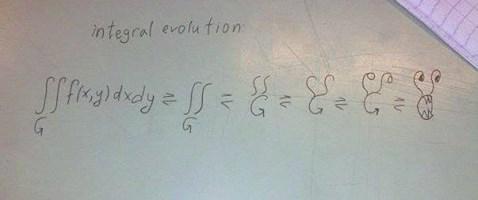 integral evolution
∬f(x,y)dxdy ⇌ ∬ ⇌ ∬ ⇌ ∬ ⇌
G G G G G